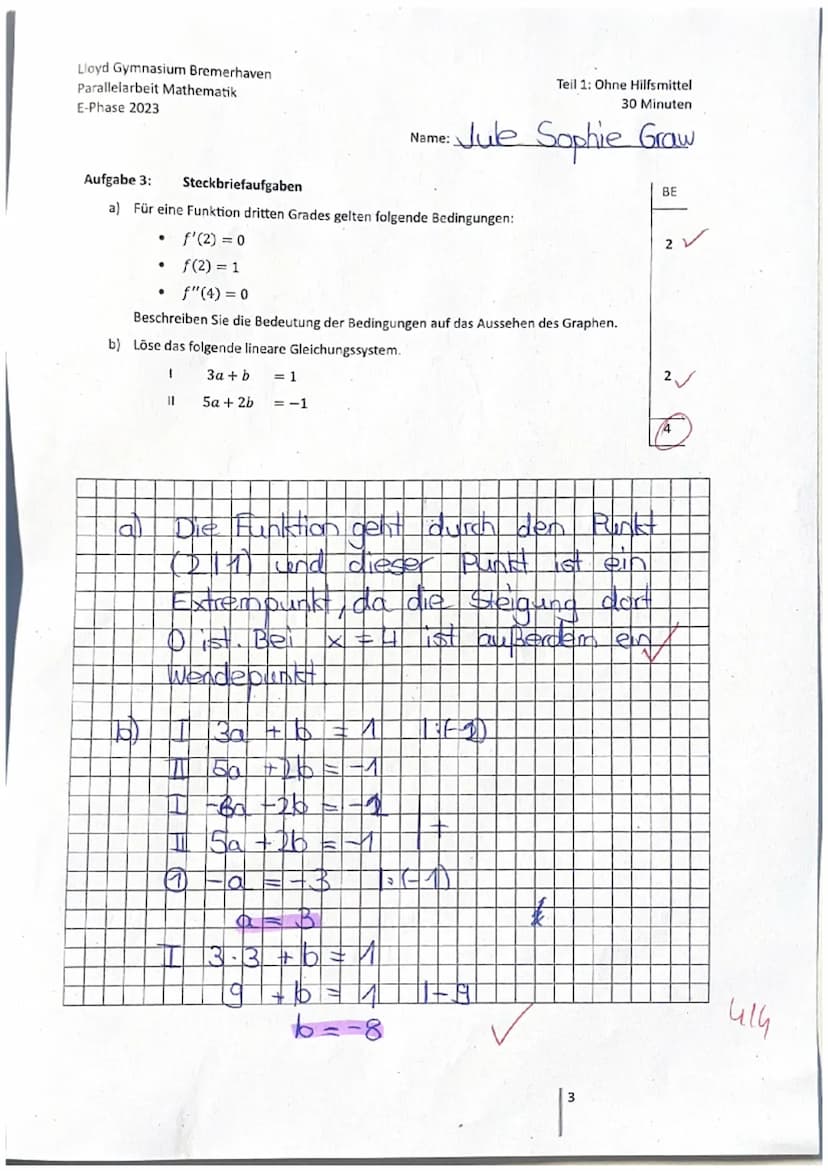 Lloyd Gymnasium Bremerhaven
Parallelarbeit Mathematik
E-Phase 2023
Teil 1: Ohne Hilfsmittel
30 Minuten
Name: Jule Sophie Graw
Aufgabe 3: Steckbriefaufgaben
BE
a) Für eine Funktion dritten Grades gelten folgende Bedingungen:
• f'(2) = 0
2 ✓
• f(2) = 1
• f''(4) = 0
Beschreiben Sie die Bedeutung der Bedingungen auf das Aussehen des Graphen.
b) Löse das folgende lineare Gleichungssystem.
I 3a + b = 1
2 ✓
II 5a + 2b = −1
4
a) Die Funktion geht durch den Punkt
(2|1) und dieser Punkt ist ein
Extrempunkt, da die Steigung dort
0 ist. Bei x = 4 ist außerdem ein ✓
Wendepunkt.
b) I 3a + b = 1 |·(-2)
II 5a + 2b = -1
I -6a - 2b = -2
II 5a + 2b = -1 | +
① -a = -3 |:(-1)
a = 3
I 3·3 + b = 1
9 + b = 1 |-9
b = -8 ✓
4/4
3